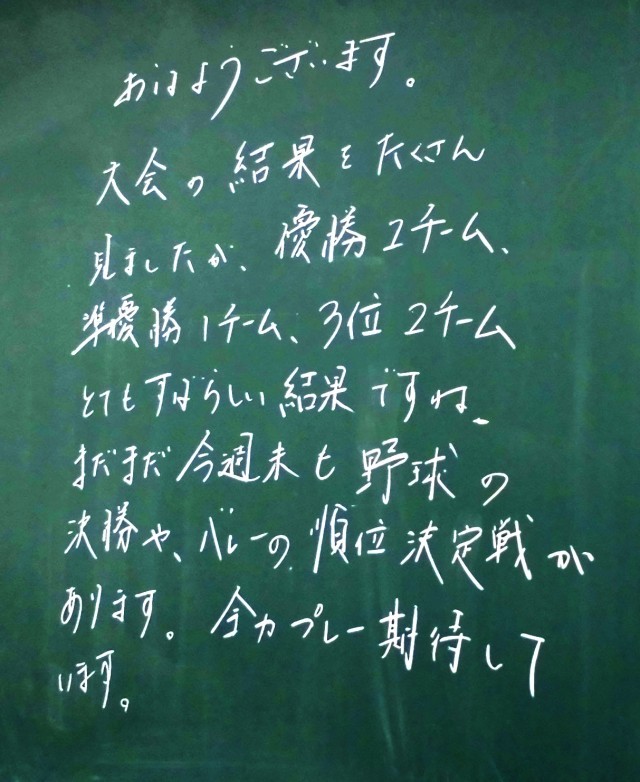 おはようございます。
大会の結果をたくさん
見ましたが、優勝2チーム、
準優勝1チーム、3位2チーム
とてもすばらしい結果ですね。
まだまだ今週末も野球の
決勝や、バレーの順位決定戦が
あります。全力プレー期待して
います。